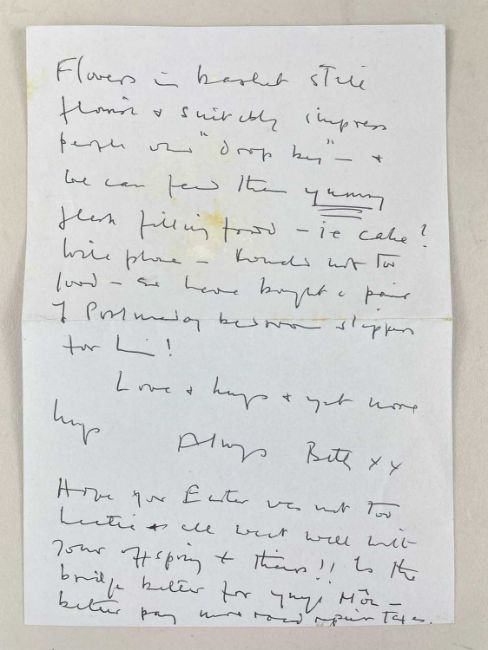 Flowers in basket still
flourish & suitably impress
people who "drop by" – &
we can feed them yummy
flesh filling food – ie cake!
Will phone – not too
– have bought a pair
of Postman bedroom slippers
for him!
Love & hugs & yet more
hugs Always Beth xx
Hope your Easter was not too
hectic & all went well with
your offspring & theirs!! Is the
bridge better for Ynys Môn –
better pay more road repair taxes.